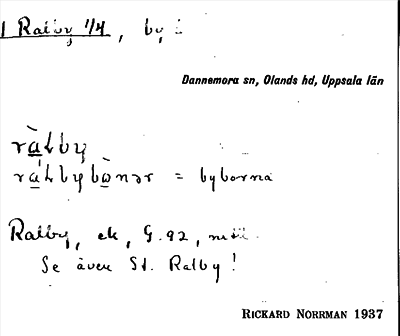 1 Ralby 1/4, by
Dannemora sn, Olands hd, Uppsala län
ràLby
ràLbybònər = byborna
Ralby, ek, G.92,
Se även St. Ralby!
RICKARD NORRMAN 1937